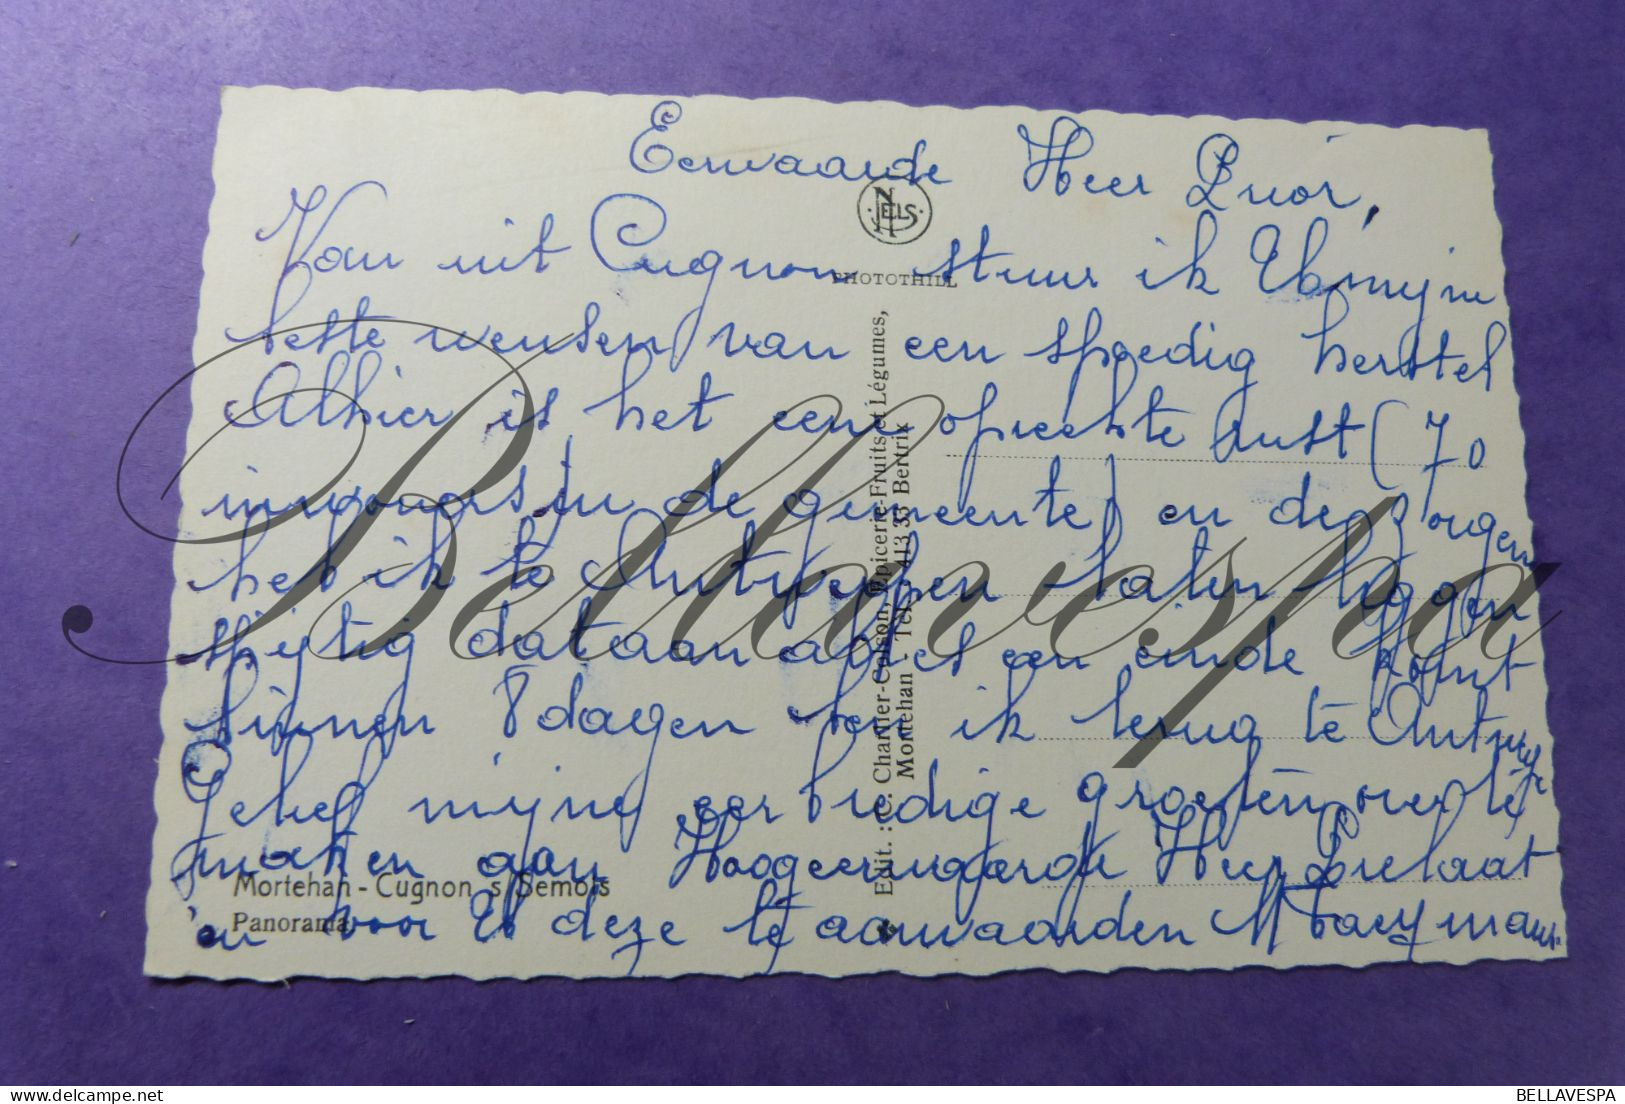 Eerwaarde Heer Prior,
Van uit Cugnon stuur ik Eb mijne
beste wensen van een spoedig herstel
Alhier is het eene oprechte rust (70
inwoners in de gemeente) en de zorgen
heb ik te Antwerpen laten liggen
spijtig dat aan alles een einde komt
binnen 8 dagen ben ik terug te Antwerpe
Gelief mijne eerbiedige groeten over te
maken aan Hoogeerwaarde Heer Prelaat
en voor Eb deze te aanvaarden
NELS
PHOTOTHILL
Edit. : C. Charlier-Colson, Epicerie-Fruits et Légumes,
Mortehan - Tél. 413 33 Bertrix
Mortehan - Cugnon s/Semois
Panorama
Bellavespa
BELLAVESPA